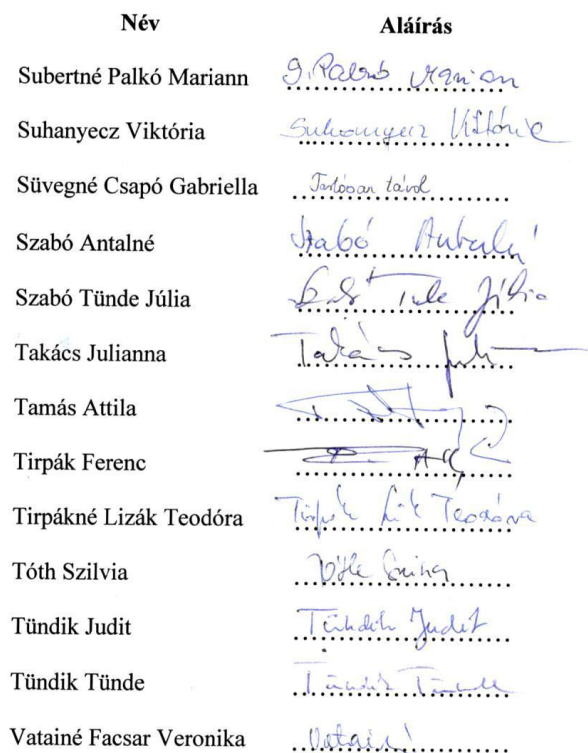 Név Aláírás
Subertné Palkó Mariann S. Palkó Mariann
Suhanyecz Viktória Suhanyecz Viktória
Süvegné Csapó Gabriella Tartósan távol
Szabó Antalné Szabó Antalné
Szabó Tünde Júlia Tünde Júlia
Takács Julianna Takács Juli
Tamás Attila
Tirpák Ferenc
Tirpákné Lizák Teodóra Teodóra
Tóth Szilvia
Tündik Judit Tündik Judit
Tündik Tünde Tündik Tünde
Vatainé Facsar Veronika Vatainé